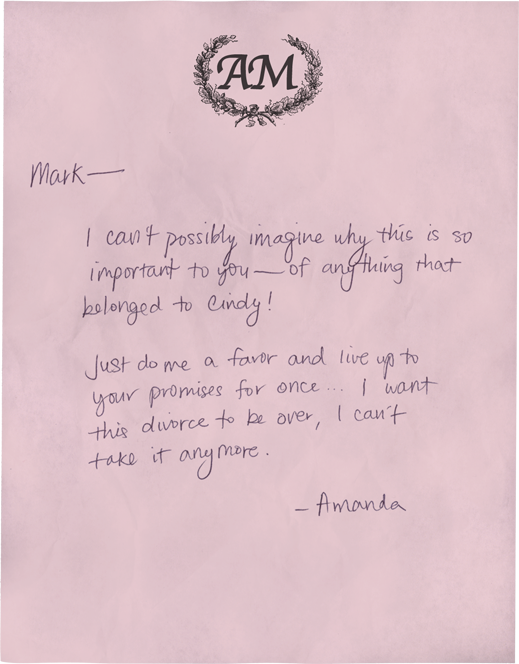 AM
Mark—
I can't possibly imagine why this is so
important to you — of anything that
belonged to Cindy!
Just do me a favor and live up to
your promises for once... I want
this divorce to be over, I can't
take it anymore.
– Amanda